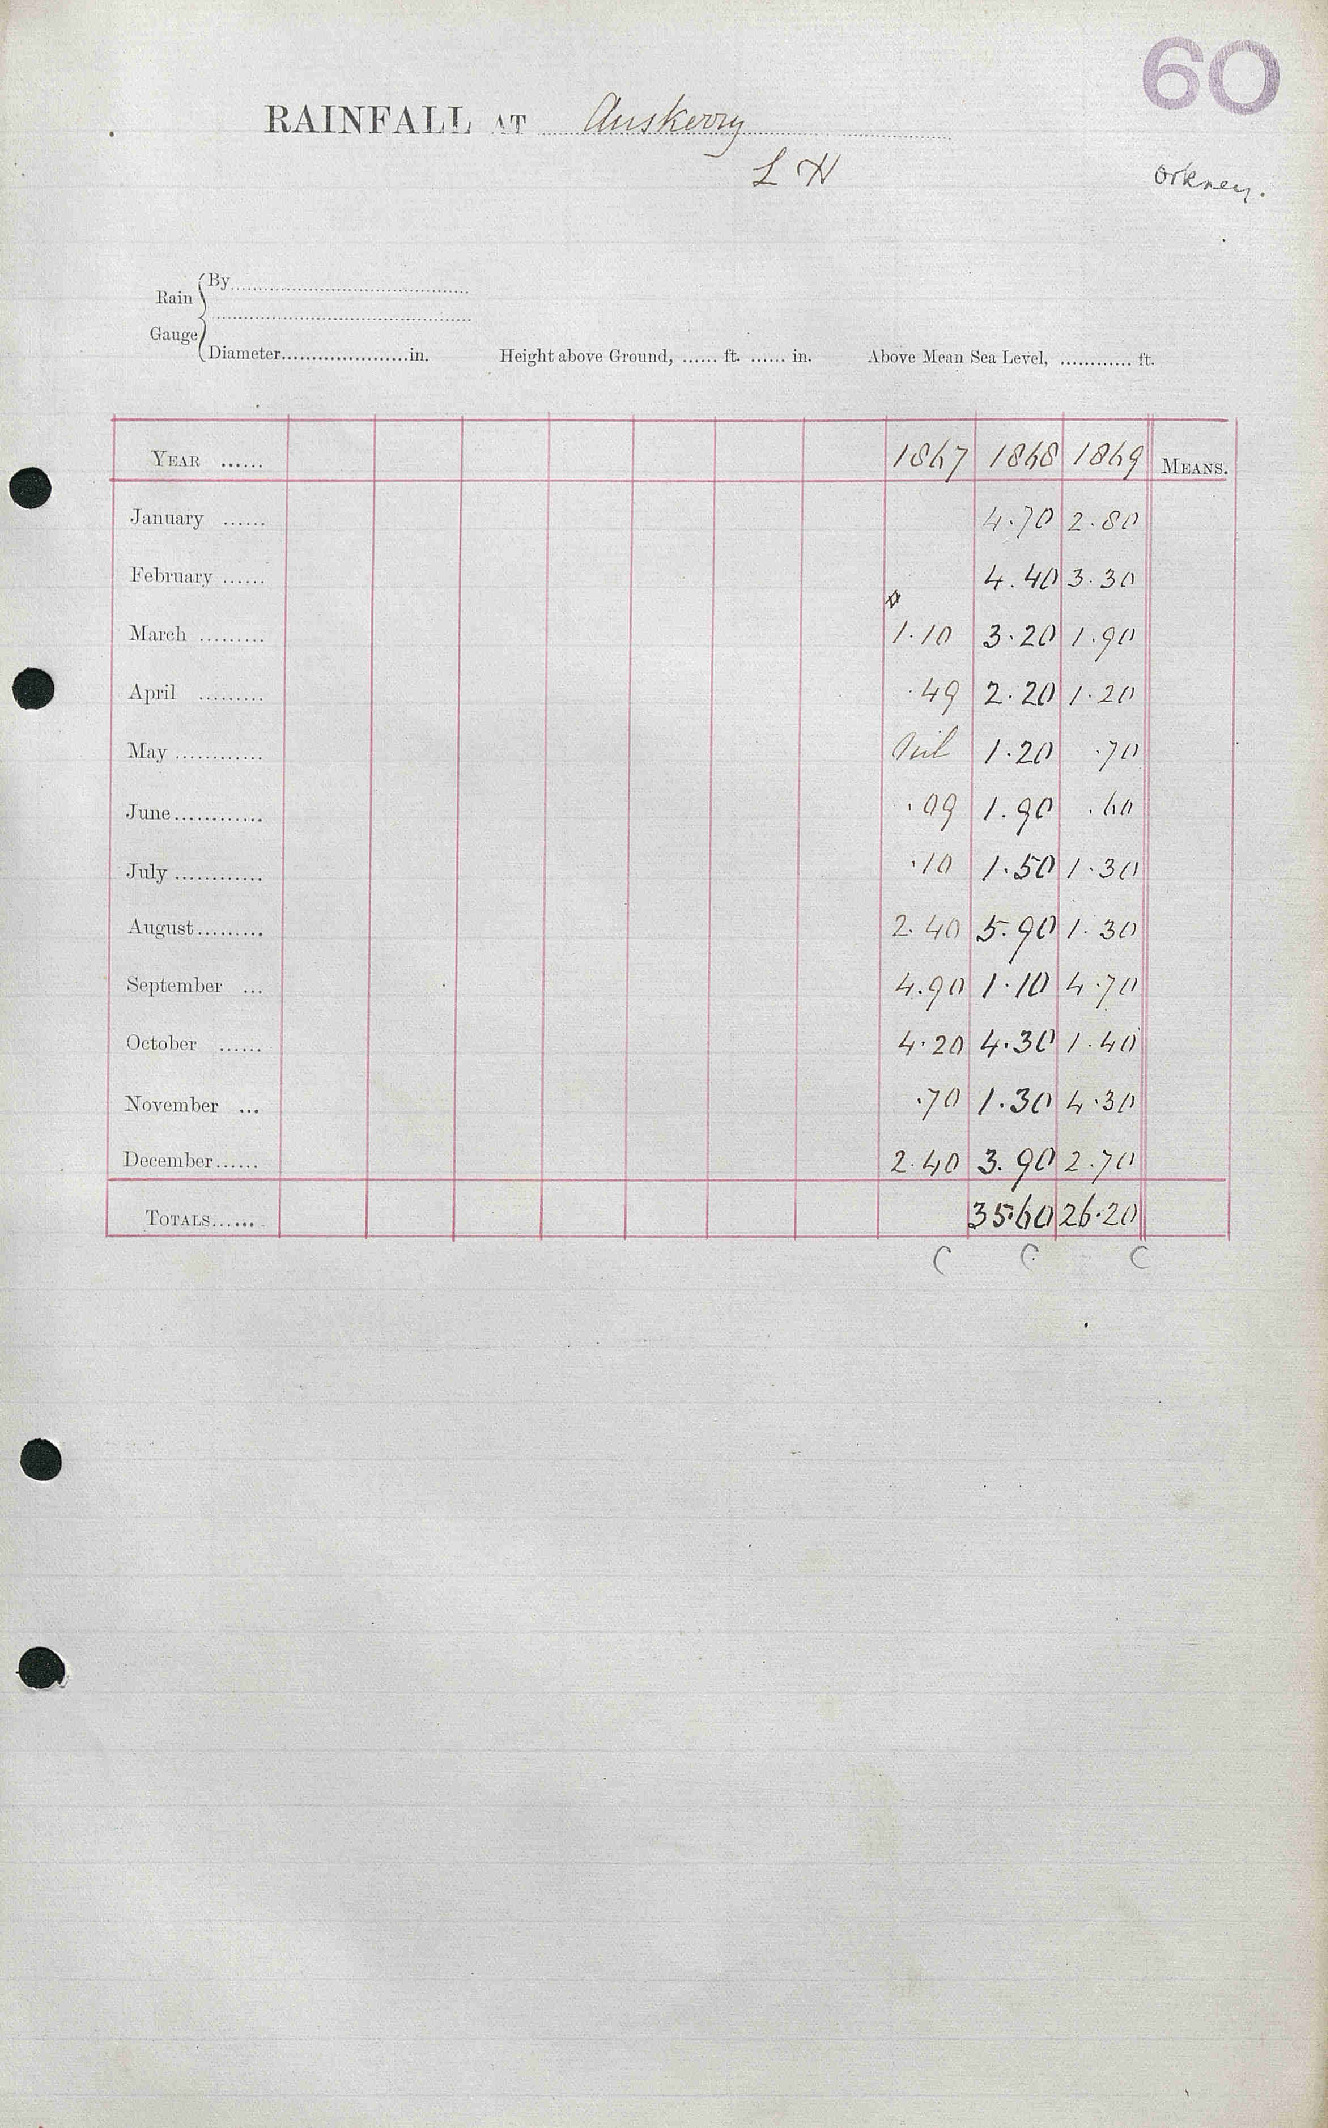 60
RAINFALL AT Auskerry
L H
Orkney.
Rain Gauge
By
Diameter in. Height above Ground, ft. in. Above Mean Sea Level, ft.
YEAR 1867 1868 1869 MEANS.
January 4.70 2.80
February 4.40 3.30
March 1.10 3.20 1.90
April .49 2.20 1.20
May Nil 1.20 .70
June .09 1.90 .60
July .10 1.50 1.30
August 2.40 5.90 1.30
September 4.90 1.10 4.70
October 4.20 4.30 1.40
November .70 1.30 4.30
December 2.40 3.90 2.70
TOTALS 35.60 26.20
C C C